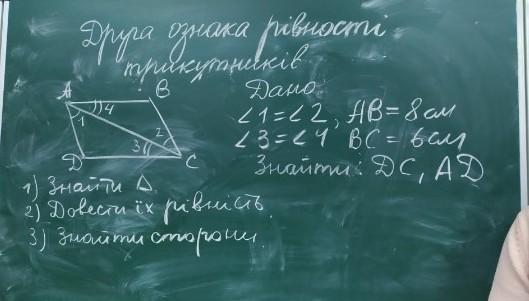 Друга ознака рівності
трикутників
A B
1 4
2
3
D C
Дано:
∠1=∠2, AB=8 см
∠3=∠4 BC=6 см
Знайти: DC, AD
1) Знайти Δ.
2) Довести їх рівність.
3) Знайти сторони